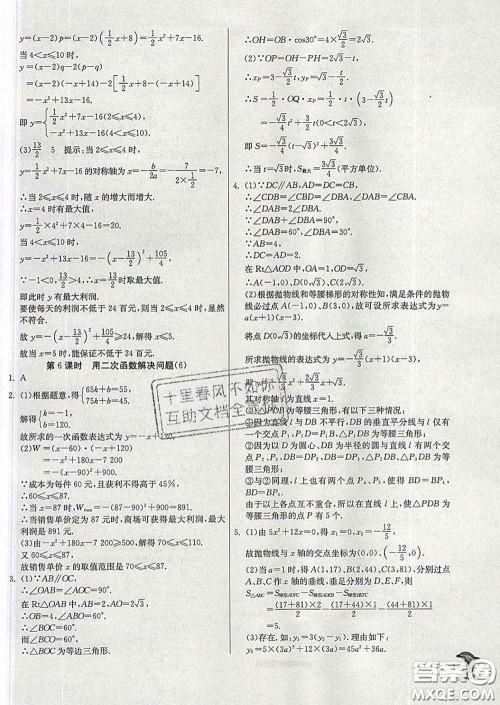 y=(x-2)p=(x-2)(1/2x+8)=1/2x²+7x-16.
当 4<x≤10 时,
y=(x-2)q-2(p-q)
=(x-2)(-x+14)-2[1/2x+8-(-x+14)]
=-x²+13x-16.
即 y={1/2x²+7x-16(2≤x≤4),
-x²+13x-16(4<x≤10).
(3)13/2 5 提示:当 2≤x≤4 时,
∴当 2≤x≤4 时,随 x 的增大而增大.
∴x=4 时有最大值,
y=1/2×4²+7×4-16=20.
当 4<x≤10 时,
y=-x²+13x-16=-(x-13/2)²+105/4,
∵-1<0,13/2>4,∴x=13/2 时取最大值.
即此时 y 有最大利润.
要使每天的利润不低于 24 百元,则当 2≤x≤4 时,显然
不符合.
故 y=-(x-13/2)²+105/4≥24,∴x≥5.
故当 x=5 时,能保证不低于 24 百元.
第 6 课时 用二次函数解决问题(6)
1. A
2. (1)根据题意,得{65k+b=55,
75k+b=45.
解得{k=-1,
b=120.
故所求的一次函数表达式为
(2)W=(x-60)·(-x+120)
=-x²+180x-7 200
=-(x-90)²+900.
∵成本为每件 60 元,且获利不得高于 45%,
∴60≤x≤87.
∴当 x=87 时,W最大=-(87-90)²+900=891.
∴当销售单价定为 87 元时,商场可获得最大利润,最大
利润是 891 元.
(3)由-x²+180x-7 200≥500,解得 70≤x≤110.
又 60≤x≤87,
故销售单价 x 的取值范围是 70≤x≤87.
3. (1)∵AB∥OC,
∴∠OAB=∠AOC=90°.
在 Rt△OAB 中,AB=2,AO=2√3,
∴OB=4,∠ABO=60°.
∴∠BOC=60°.
又∠BCO=60°,
∴△BOC 为等边三角形.
∴OH=OB·cos30°=4×√3/2=2√3.
(2)∵OP=OH-PH=2√3-t,
∴S=1/2·OQ·xP=1/2·t·(3-√3/2t)
=-√3/4t²+3/2t(0<t<2√3).
即 S=-√3/4(t-√3)²+3√3/4.
∴当 t=√3 时,S最大=3√3/4(平方单位).
4. (1)∵DC∥AB,AD=DC=CB,
∴∠CDB=∠CBD=∠DBA.
∴∠DAB=∠CBA.
∴∠DAB=2∠DBA.
∴∠DAB+∠DBA=90°.
∴∠DAB=60°,∠DBA=30°.
∵AB=4,
∴DC=AD=2.
在 Rt△AOD 中,OA=1,OD=√3,
∴A(-1,0),D(0,√3),C(2,√3).
(2)根据抛物线和等腰梯形的对称性知,满足条件的抛物
线必过点 A(-1,0),B(3,0),故可设所求表达式为
将点 D(0,√3)的坐标代入上式,得
所求抛物线的表达式为
其对称轴为直线 x=1.
(3)△PDB 为等腰三角形,有以下三种情况:
①因为直线 l 与 DB 不平行,DB 的垂直平分线与直线
l 仅有一个交点 P₁,P₁D=P₁B,△P₁DB 为等腰三角形;
②因为以 D 为圆心,DB 为半径的圆与直线 l 有两个交
点 P₂,P₃,DB=DP₂,DB=DP₃,△P₂DB,△P₃DB 为等
腰三角形;
③与②同理,l 上也有两个点 P₄,P₅,使得 BD=BP₄,
BD=BP₅.
由于以上各点互不重合,所以在直线 l 上,使△PDB 为
等腰三角形的点 P 有 5 个.
5. (1)当 a=1/5 时,y=x²+12/5x,令 y=0,得 x₁=0,x₂=-12/5,
故抛物线与 x 轴的交点坐标为(0,0),(-12/5,0).
(2)当 a=1 时,得 A(1,17),B(2,44),C(3,81).
S△ABC=
=(17+81)×2/2-(17+44)×1/2-(44+81)×1/2
=5.
(3)存在.如 y₃=3(y₂-y₁).理由如下:
∵y₃=5×(3a)²+12×(3a)=45a²+36a,
十里春风不如你
互助文档全靠你
答案圈
MXQE.COM